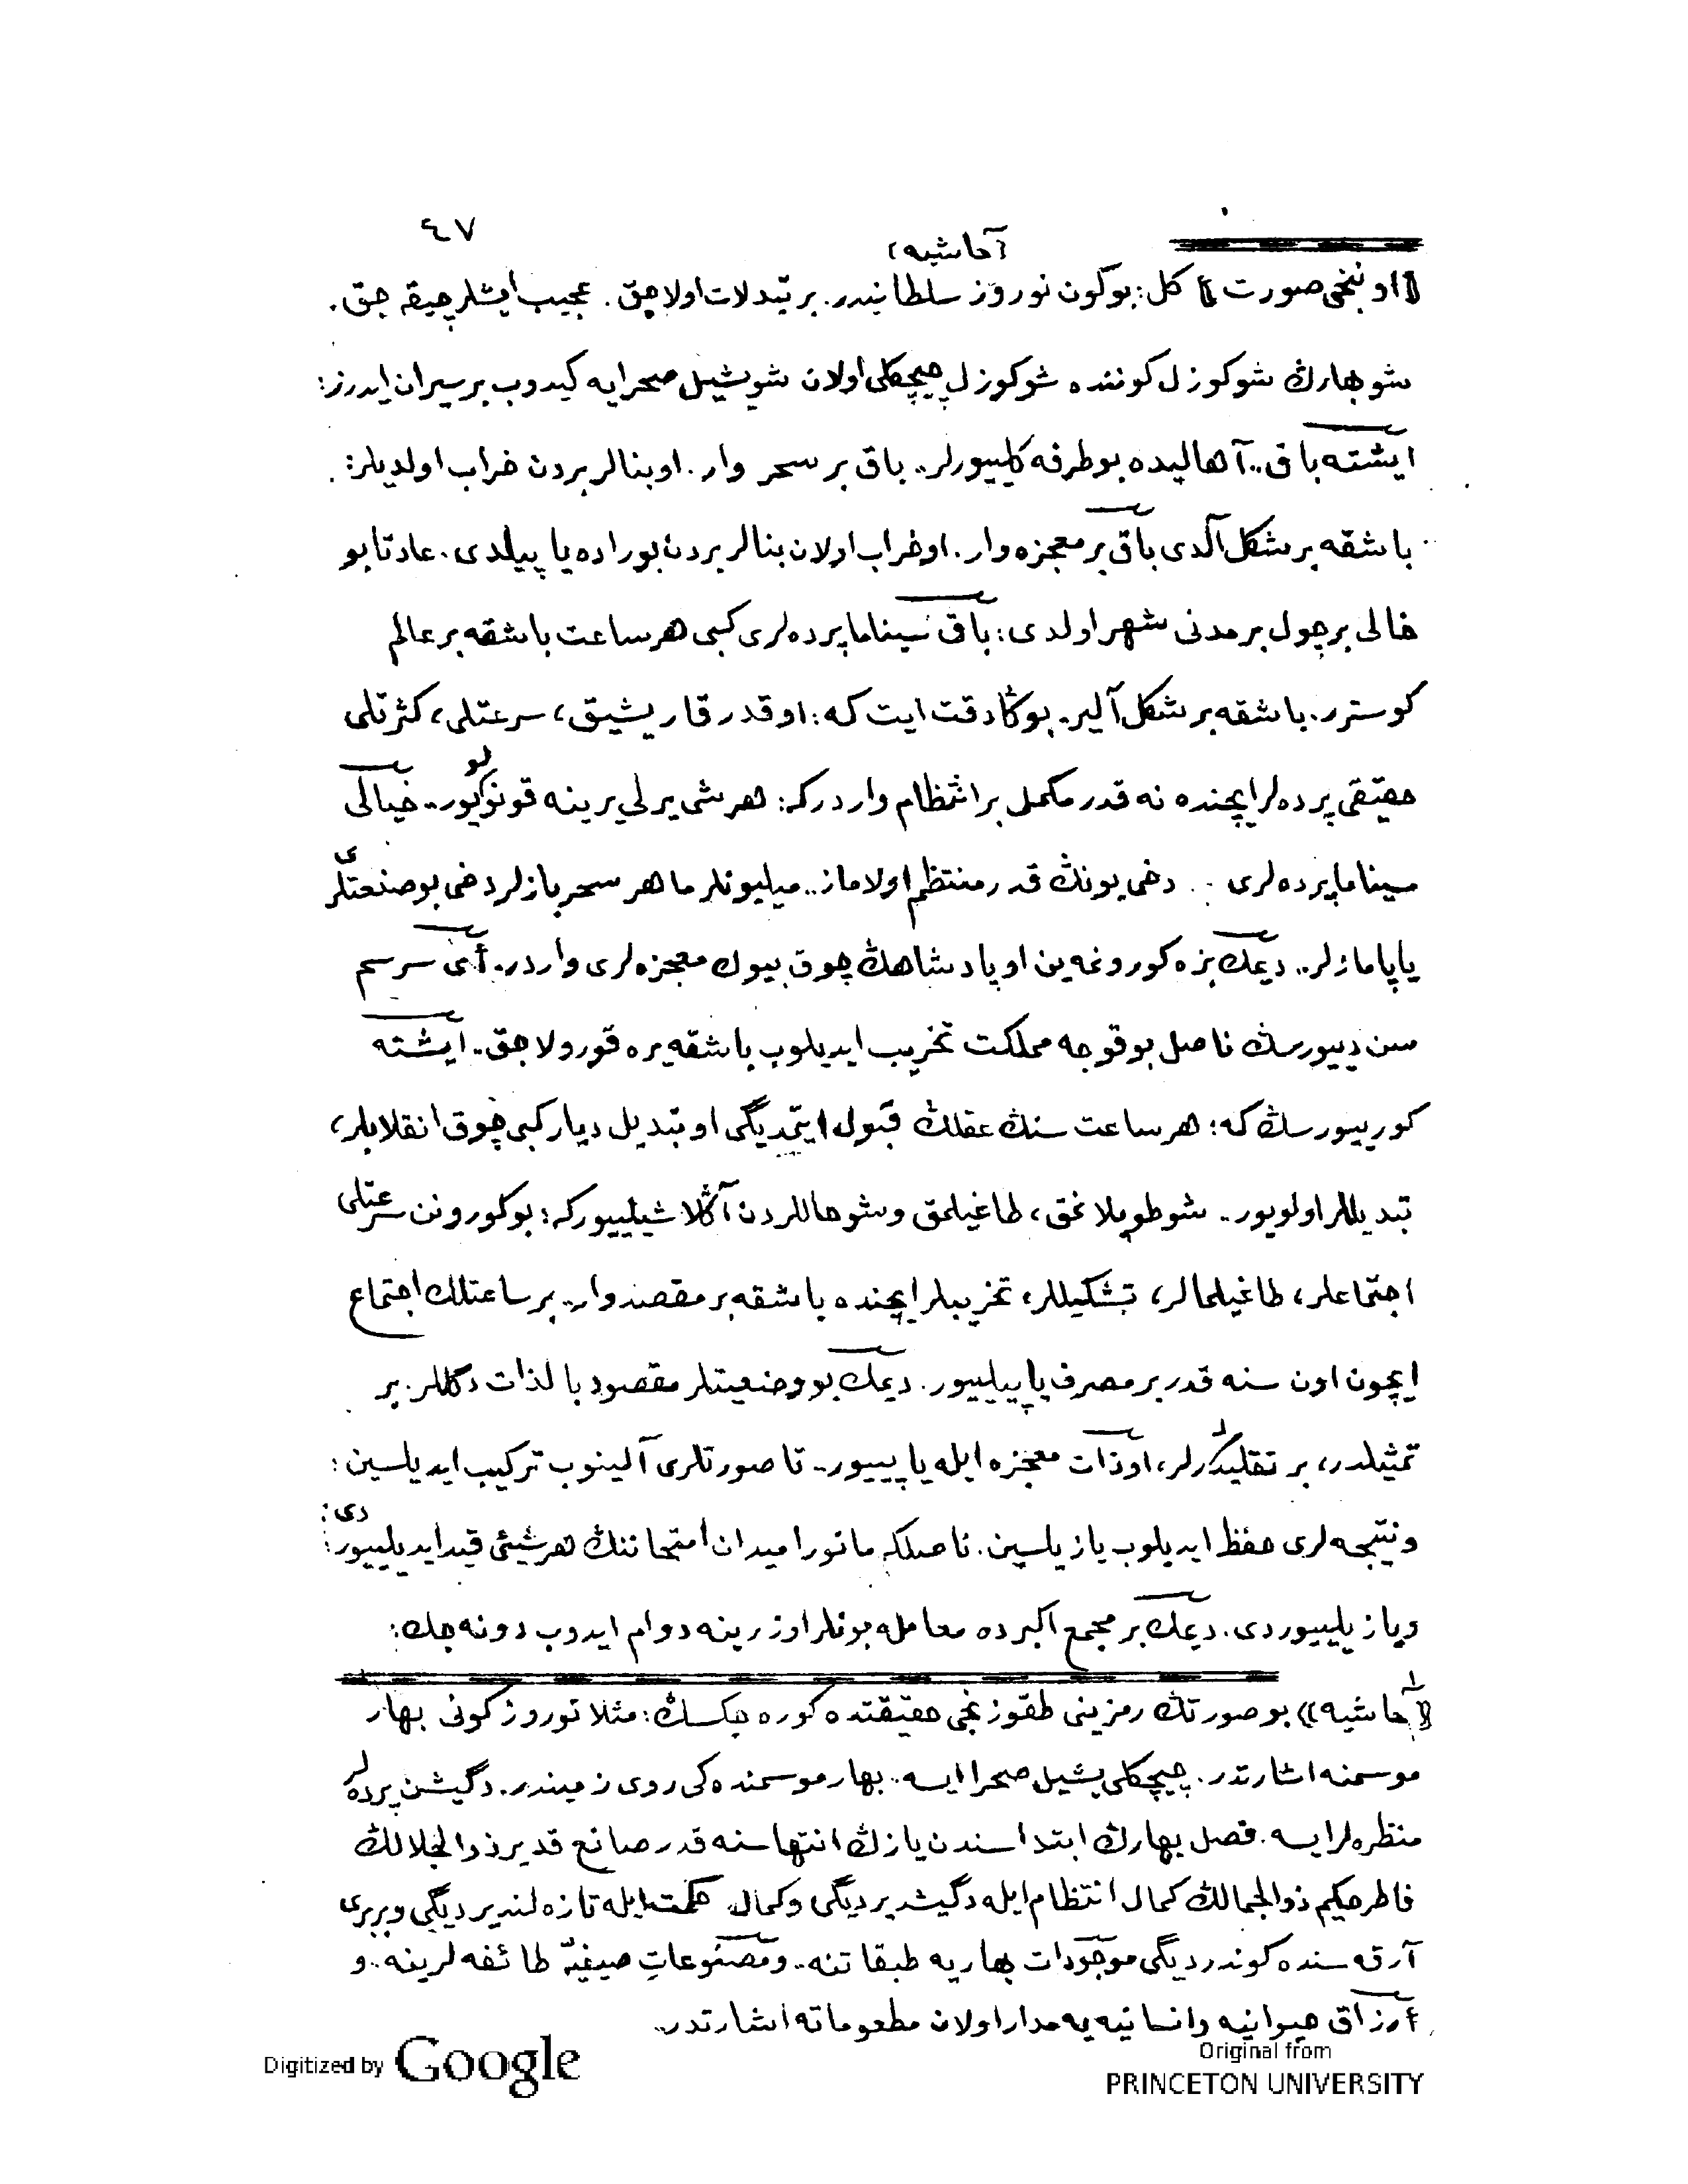 ٤٧
(حاشیه)
﴿اوننجی صورت﴾ كل: بوكون نوروز سلطانیدر. بر تبدلات اولاجق. عجیب ایشلر چیقه جق.
شو بهارڭ شو كوزل كوننده شو كوزل چیچكلی اولان شو یشیل صحرایه كیدوب بر سیران ایدرز:
ایشته باق.. آهالیده بو طرفه كلییورلر.. باق بر سحر وار. او بنالر بردن خراب اولدیلر:
باشقه بر شكل آلدی باق بر معجزه وار. او خراب اولان بنالر بردن بوراده یاپیلدی. عادتا بو
خالی بر چول بر مدنی شهر اولدی: باق سینما پرده‌لری كبی هر ساعت باشقه بر عالم
كوسترر. باشقه بر شكل آلیر. بوكا دقت ایت كه: او قدر قاریشیق، سرعتلی، كثرتلی
حقیقی پرده‌لر ایچنده نه قدر مكمل بر انتظام واردركه: هر شی یرلی یرینه قونولویور.. خیالی
سینما پرده‌لری دخی بونڭ قدر منتظم اولاماز.. میلیونلر ماهر سحربازلر دخی بو صنعتلری
یاپامازلر.. دیمك بزه كورونمه‌ین او پادشاهڭ چوق بیوك معجزه‌لری واردر. أی سرسم
سن دییورسڭ ناصل بو قوجه مملكت تخریب ایدیلوب باشقه یره قورولاجق.. ایشته
كورییورسڭ كه: هر ساعت سنڭ عقلڭ قبول ایتمدیگی او تبدیل دیار كبی چوق انقلابلر،
تبدیللر اولویور.. شو طوپلانمق، طاغیلمق وشو حاللردن آڭلاشیلییوركه: بو كورونن سرعتلی
اجتماعلر، طاغیلمالر، تشكیللر، تخریبلر ایچنده باشقه بر مقصد وار.. بر ساعتلك اجتماع
ایچون اون سنه قدر بر مصرف یاپیلییور. دیمك بو وضعیتلر مقصود بالذات دگللر. بر
تمثیلدر، بر تقلیددرلر، او ذات معجزه ایله یاپییور.. تا صورتلری آلینوب تركیب ایدیلسین:
و نتیجه‌لری حفظ ایدیلوب یازیلسین. ناصلكه مانورا میدان امتحاننڭ هر شیئی قید ایدیلییوردی:
ویازیلییوردی. دیمك بر مجمع اكبرده معامله بونلر اوزرینه دوام ایدوب دونه جك:
﴿(حاشیه)﴾ بو صورتڭ رمزینی طقوزنجی حقیقتده كوره جكسڭ: مثلا نوروز كونی بهار
موسمنه اشارتدر. چیچكلی یشیل صحرا ایسه.. بهار موسمنده‌كی روی زمیندر. دگیشن پرده‌لر
منظره‌لر ایسه. فصل بهارڭ ابتداسندن یازڭ انتهاسنه قدر صانع قدیر ذوالجلالڭ
فاطر حكیم ذوالجمالڭ كمال انتظام ایله دگیشدیردیگی وكمال حكمت ایله تازه‌لندیردیگی و بربری
آرقه‌سنده كوندردیگی موجودات بهاریه طبقاتنه.. و مصنوعاتِ صیفیهٔ طائفه لرینه.. و
أرزاق حیوانیه وانسانیه‌یه مدار اولان مطعوماته اشارتدر..
Digitized by Google
Original from
PRINCETON UNIVERSITY